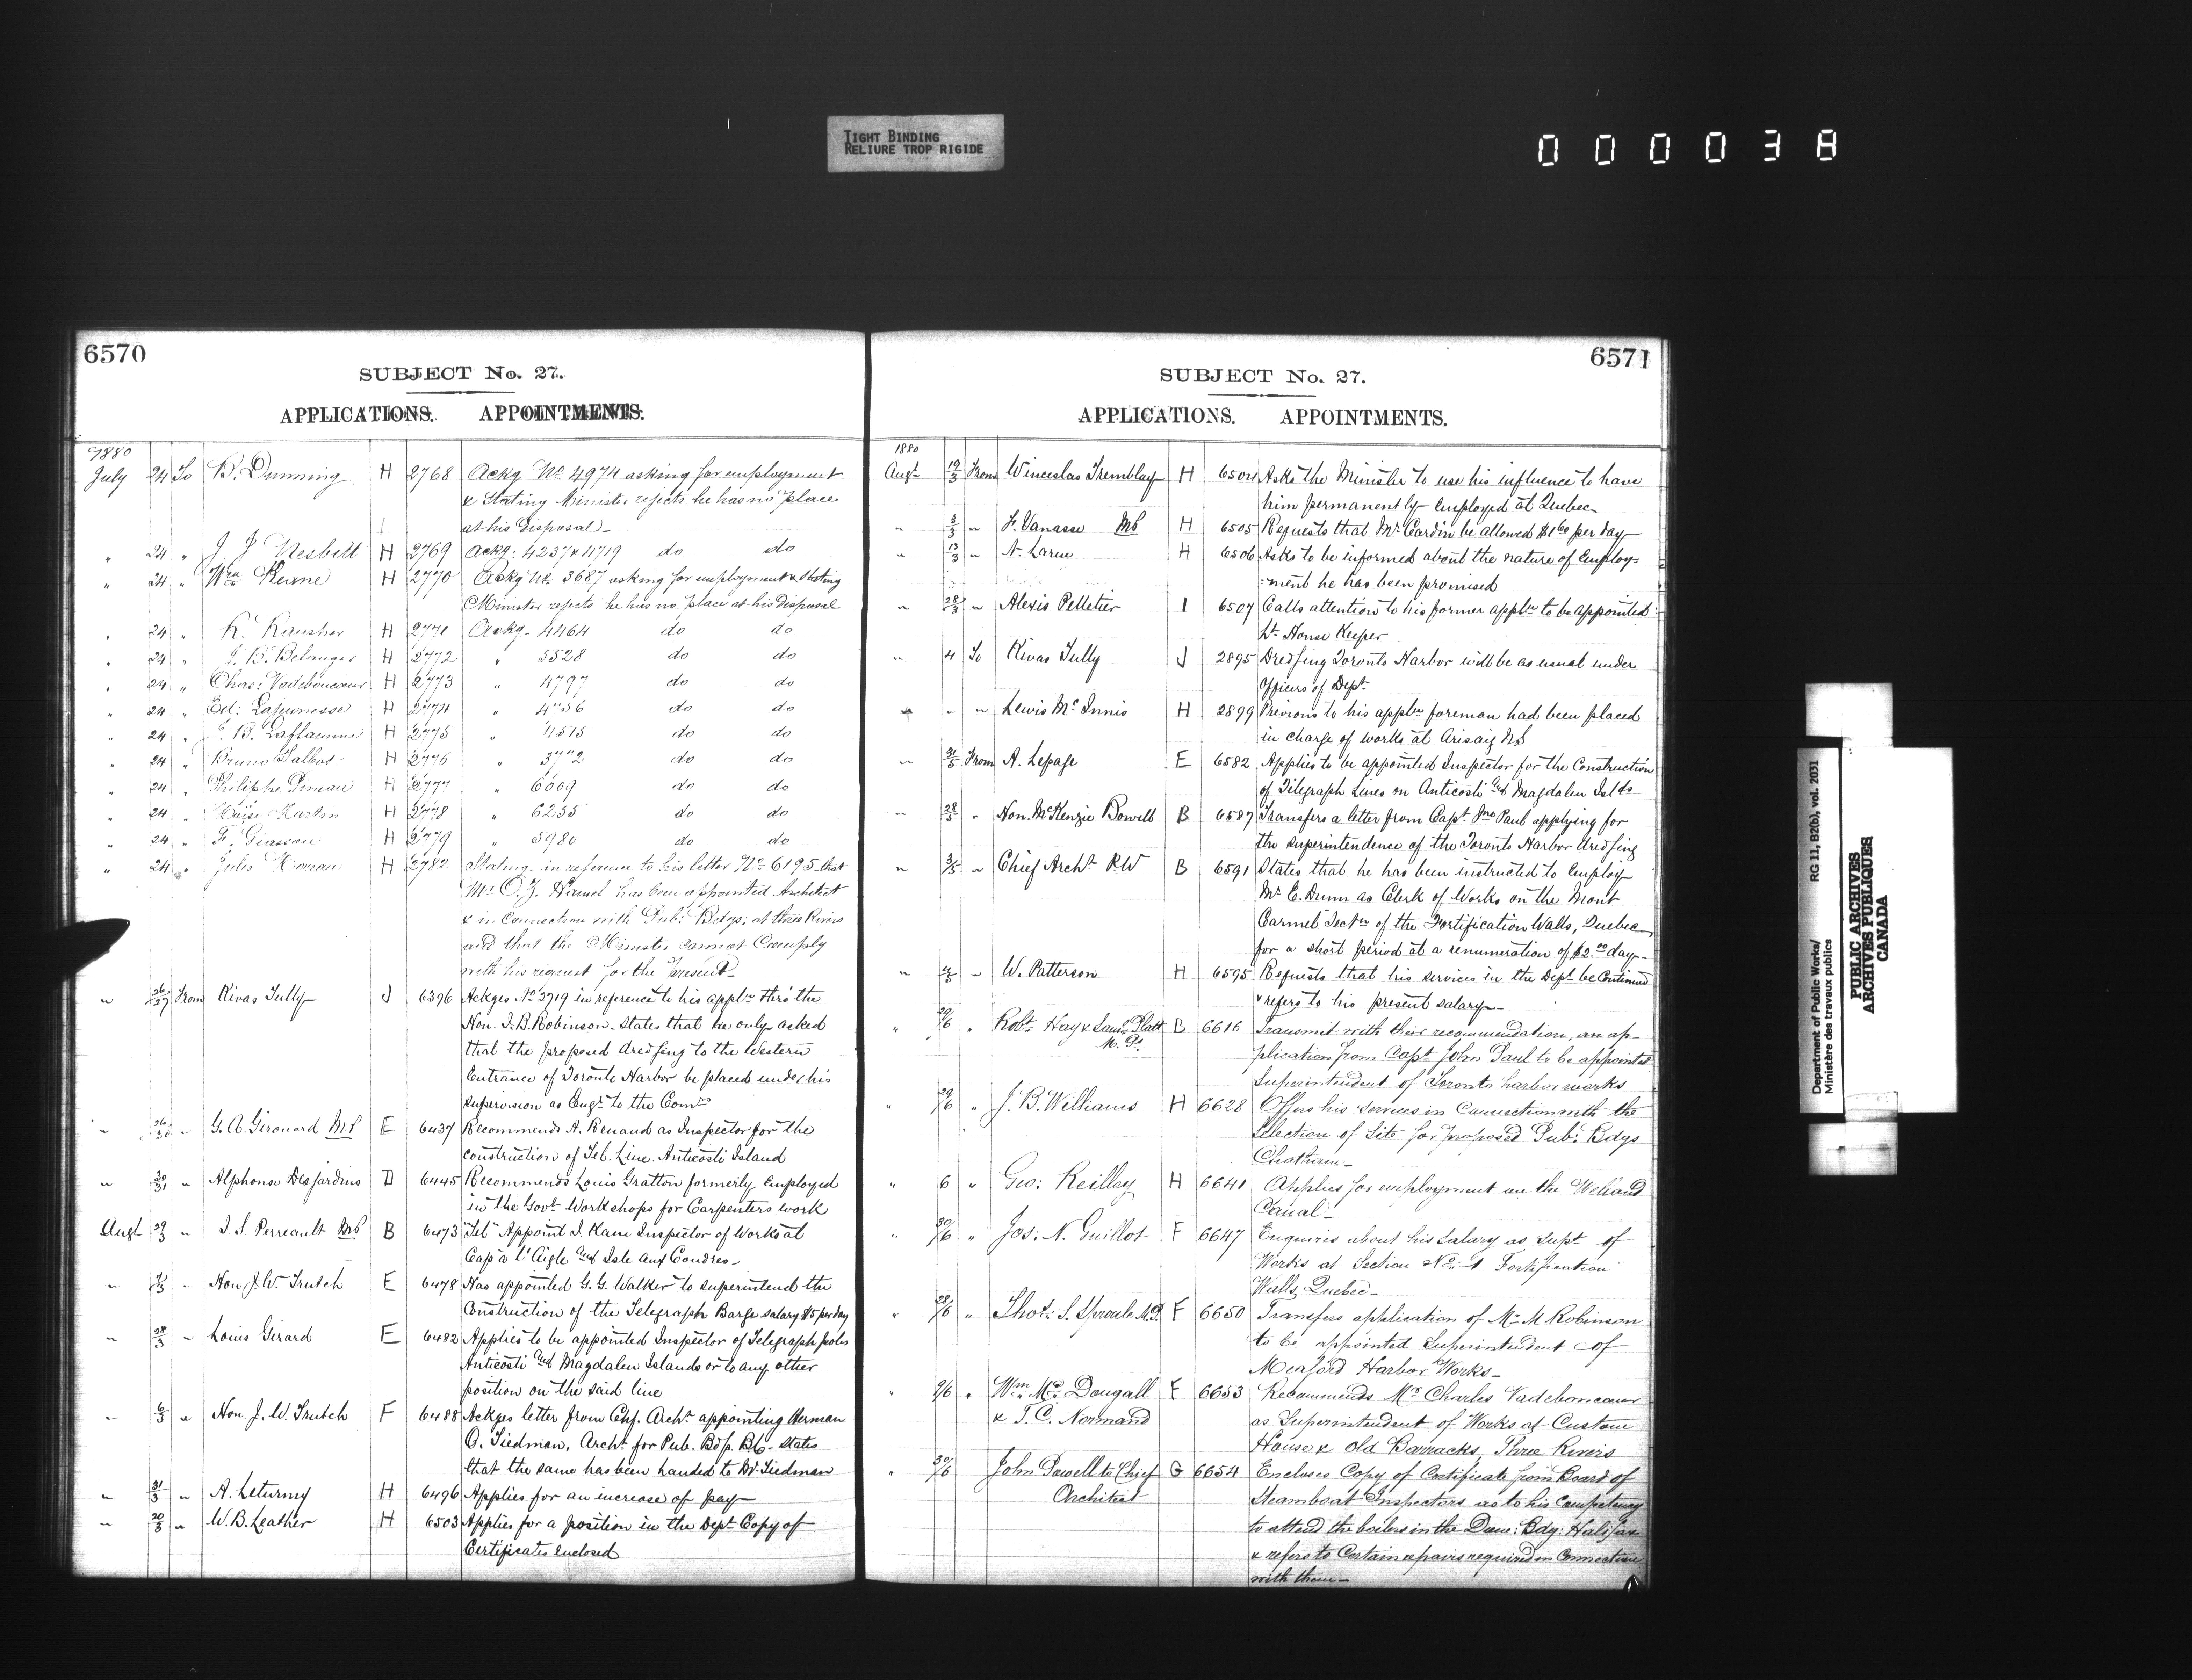 TIGHT BINDING
RELIURE TROP RIGIDE
000038
6570
SUBJECT No. 27.
APPLICATIONS. APPOINTMENTS.
1880
July 24 To B. Dunning H 2768 Ackg No 4974 asking for employment
& Stating Minister rejects he has no place
at his disposal-
" 24 " J. J. Nesbitt H 2769 Ackg: 4237 & 4719 do do
" 24 " Wm Keane H 2770 Ackg No 3687 asking for employment & Stating
Minister rejects he has no place at his disposal
" 24 " K. Kausher H 2771 Ackg- 4464 do do
" 24 " J. B. Belanger H 2772 " 5528 do do
" 24 " Chas: Vadeboncoeur H 2773 " 4797 do do
" 24 " Ed: Lajeunesse H 2774 " 4756 do do
" 24 " J. B. Laflamme H 2775 " 4515 do do
" 24 " Bruno Talbot H 2776 " 3772 do do
" 24 " Philippe Pineau H 2777 " 6009 do do
" 24 " Martin H 2778 " 6235 do do
" 24 " F. Giasson H 2779 " 5980 do do
" 24 " Jules H 2782 Stating in reference to his letter No 6195 that
Mr O. Z. Hamel has been appointed Architect
& in Connection with Pub: Bdgs: at three Rivers
and that the Minister cannot Comply
with his request for the Present-
" 26/27 From Kivas Tully J 6396 Ackges No 2719 in reference to his appln thro' the
Hon. J. B. Robinson- States that he only asked
that the proposed dredging to the Western
Entrance of Toronto Harbor be placed under his
supervision as Engr to the Comrs
" 26/30 " G. A. Girouard MP E 6437 Recommends A. Renaud as Inspector for the
construction of Tel. Line. Anticosti Island
" 30/31 " Alphonse Desjardins D 6445 Recommends Louis Gratton formerly Employed
in the Govt Workshops for Carpenters work
Augt 29/3 " J. S. Perreault MP B 6473 "Tel" Appoint J. Kane Inspector of Works at
Cap à l'Aigle and Isle aux Coudres-
" /3 " Hon J. W. Trutch E 6478 Has appointed G. G. Walker to superintend the
Construction of the Telegraph Barge salary $5 per day
" 28/3 " Louis Girard E 6482 Applies to be appointed Inspector of Telegraph poles
Anticosti and Magdalen Islands or to any other
position on the said line
" 6/3 " Hon J. W. Trutch F 6488 Ackges letter from Chf. Archt appointing Herman
O. Tiedman, Archt for Pub. Bdg. BC- States
that the same has been handed to Mr Tiedman
" 31/3 " A. Leturmy H 6496 Applies for an increase of pay-
" 20/3 " W. B. Leather H 6503 Applies for a position in the Dept Copy of
Certificates Enclosed
6571
SUBJECT No. 27.
APPLICATIONS. APPOINTMENTS.
1880
Augt 19/3 From Winceslas Tremblay H 6504 Asks the Minister to use his influence to have
him permanently Employed at Quebec
" 3/3 " F. Vanasse MP H 6505 Requests that Mr Cardin be allowed $1.60 per day-
" 13/3 " A. Larue H 6506 Asks to be informed about the nature of Employ=
=ment he has been promised
" 28/3 " Alexis Pelletier I 6507 Calls attention to his former appln to be appointed
Lt- House Keeper
" 4 To Kivas Tully J 2895 Dredging Toronto Harbor will be as usual under
Officers of Dept
" " " Lewis McInnis H 2899 Previous to his appln foreman had been placed
in charge of works at Arisaig NS
" 31/5 From A. Lepage E 6582 Applies to be appointed Inspector for the Construction
of Telegraph Lines on Anticosti and Magdalen Islds
" 28/5 " Hon. McKenzie Bowell B 6587 Transfers a letter from Capt Jno Paul applying for
the superintendence of the Toronto Harbor dredging
" 3/5 " Chief Archt P.W B 6591 States that he has been instructed to Employ
Mr E. Dunn as Clerk of Works on the Mont
Carmel Sectn of the Fortification Walls, Quebec
for a short period at a renumeration of $2.00 day-
" 4/5 " W. Patterson H 6595 Requests that his services in the Dept be Continued
& refers to his present salary-
" 29/6 " Robt Hay & Saml Platt B 6616 Transmit with their recommendation, an ap-
M. Ps.
plication from Capt John Paul to be appointed
Superintendent of Toronto harbor works
" 29/6 " J. B. Williams H 6628 Offers his services in Connection with the
selection of Site for proposed Pub: Bdgs
Chatham-
" 6 " Geo: Reilley H 6641 Applies for employment on the Welland
Canal-
" 30/6 " Jos: N. Guillot F 6647 Enquires about his salary as supt of
Works at Section No 1 Fortification
Walls, Quebec-
" 28/6 " Thos. S. Sproule M.P. F 6650 Transfers application of Mr M Robinson
to be appointed Superintendent of
Meaford Harbor Works-
" 9/6 " Wm Mc Dougall F 6653 Recommends Mr Charles Vadeboncoeur
& T. C. Normand as Superintendent of Works at Custom
House & Old Barracks, Three Rivers
" 30/6 John Powell to Chief G 6654 Encloses Copy of Certificate from Board of
Architect Steamboat Inspectors as to his Competency
to attend the boilers in the Dom: Bdg: Halifax
& refers to Certain repairs required in Connection
with them-
Department of Public Works/ RG 11, B2(b), vol. 2031
Ministère des travaux publics
PUBLIC ARCHIVES
ARCHIVES PUBLIQUES
CANADA